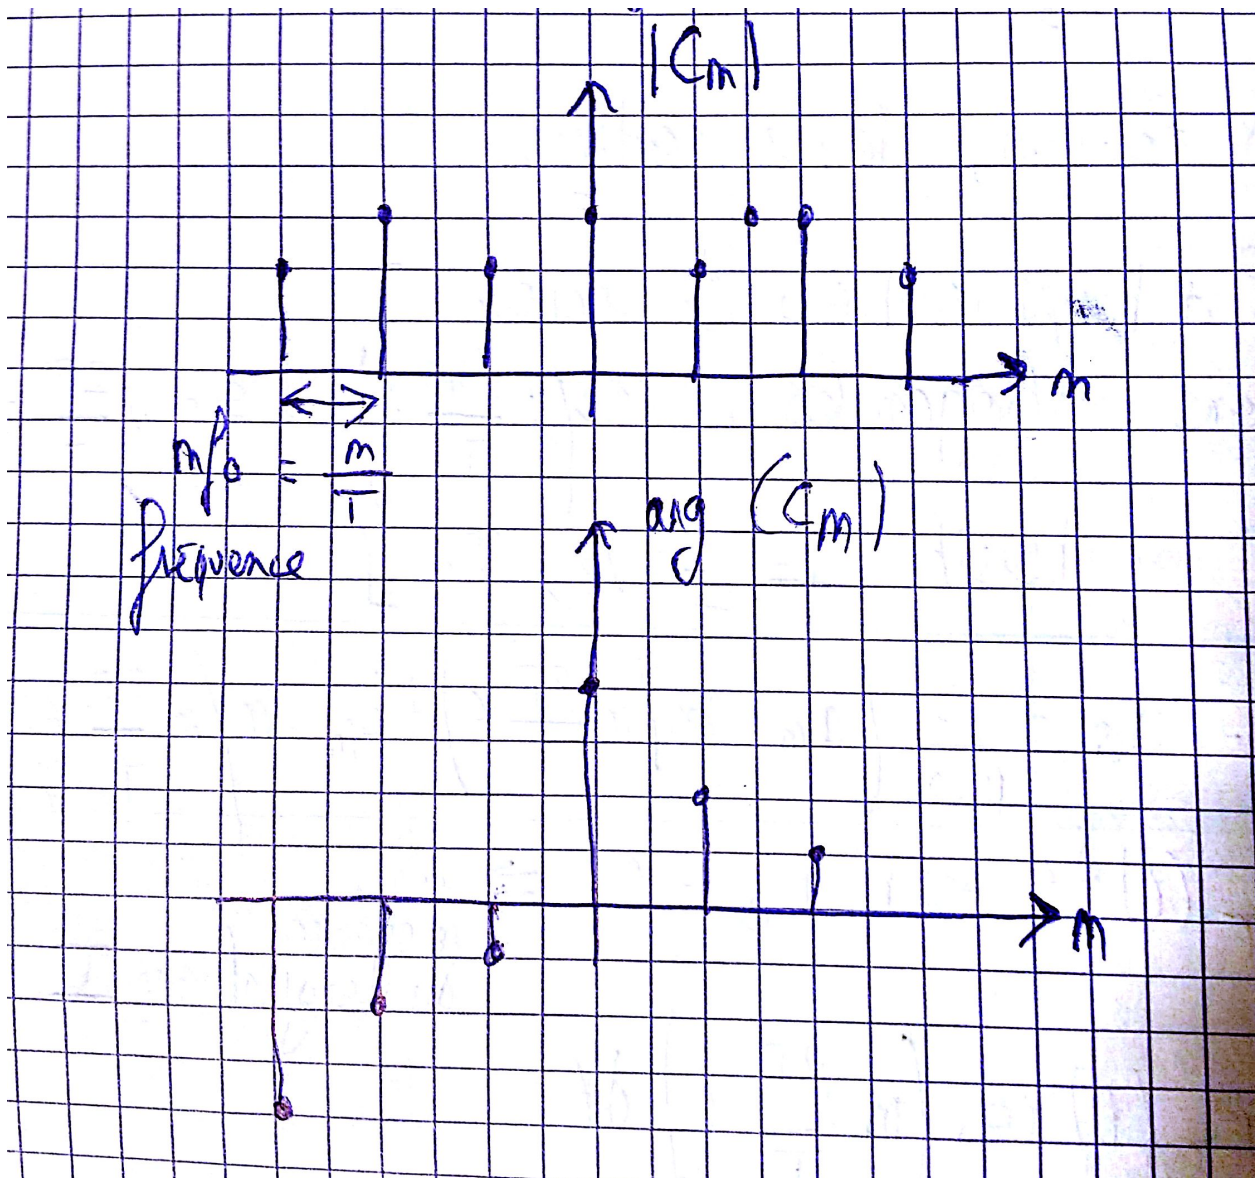 |Cₘ|
m
m f₀ = m/T
fréquence
arg (Cₘ)
m